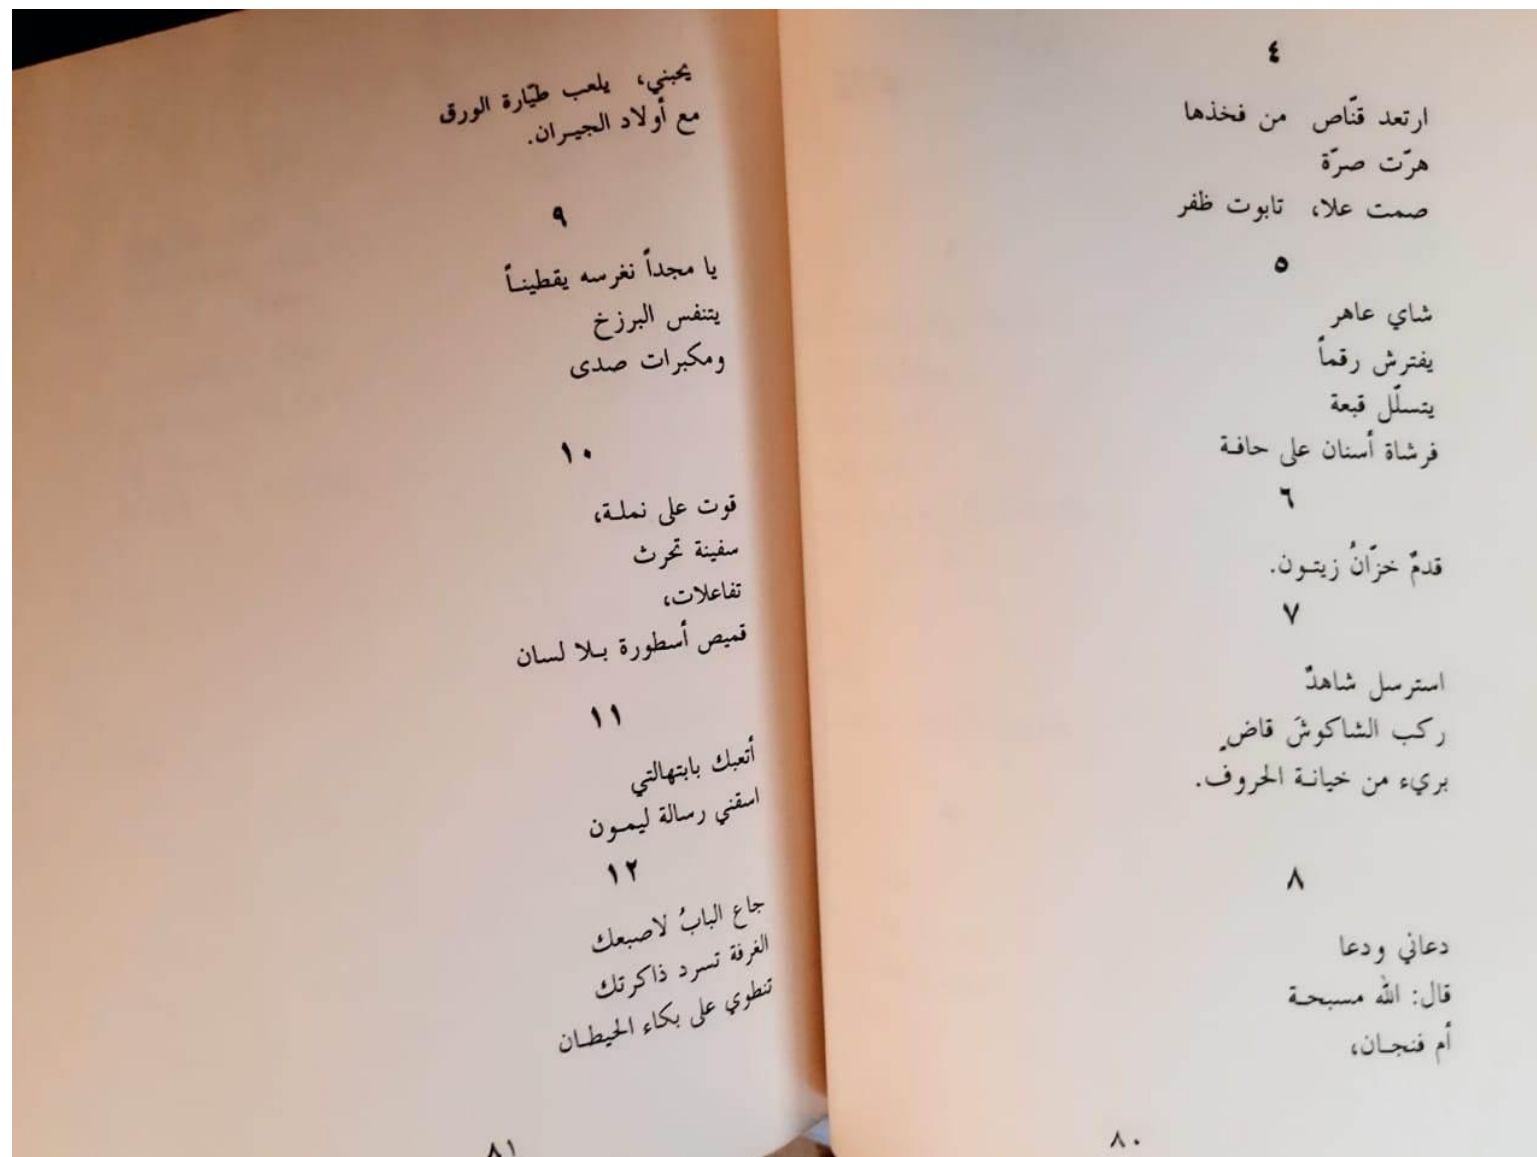 ٤
ارتعد قنّاص من فخذها
هرّت صرّة
صمت علا، تابوت ظفر
٥
شاي عاهر
يفترش رقماً
يتسلّل قبعة
فرشاة أسنان على حافة
٦
قدمٌ خزّانُ زيتون.
٧
استرسل شاهدٌ
ركب الشاكوشَ قاضٍ
بريء من خيانة الحروف.
٨
دعاني ودعا
قال: الله مسبحة
أم فنجان،
٨٠
يحبني، يلعب طيّارة الورق
مع أولاد الجيران.
٩
يا مجداً نغرسه يقطيناً
يتنفس البرزخ
ومكبرات صدى
١٠
قوت على نملة،
سفينة تحرث
تفاعلات،
قميص أسطورة بلا لسان
١١
أتعبك بابتهالتي
اسقني رسالة ليمون
١٢
جاع البابُ لاصبعك
الغرفة تسرد ذاكرتك
تنطوي على بكاء الحيطان
٨١